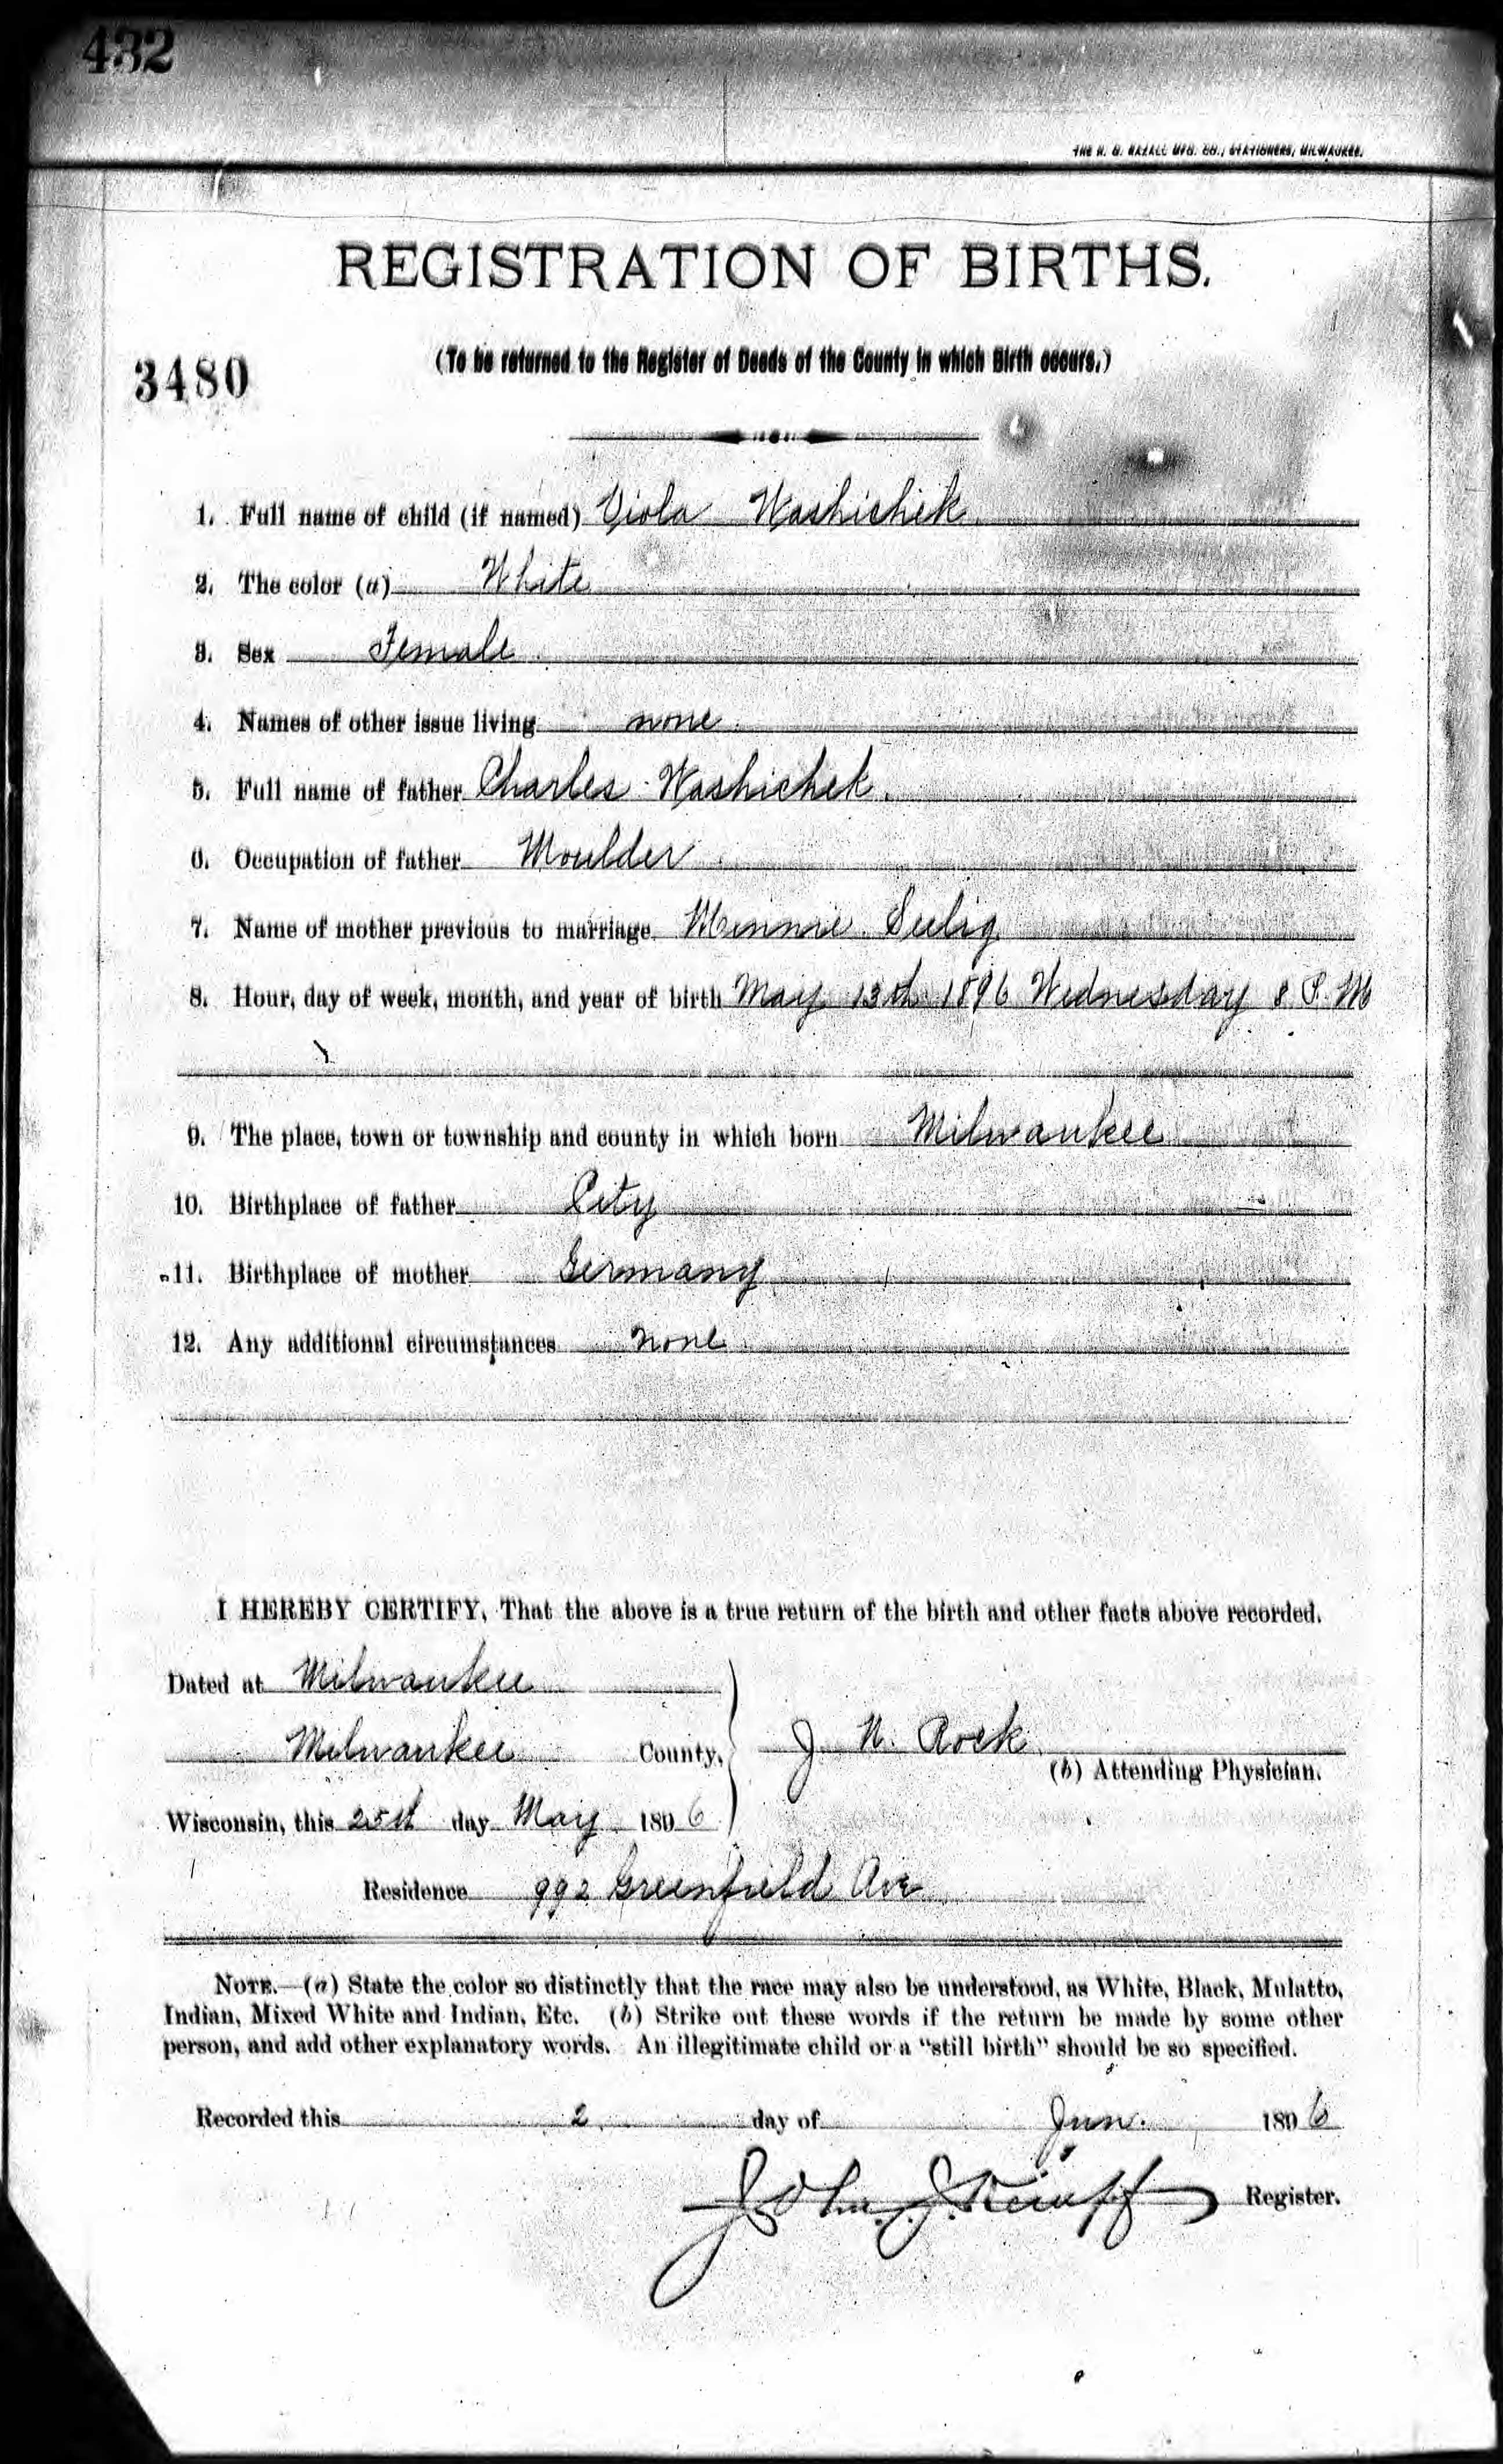 432
THE H. G. RAZALL MFG. CO., STATIONERS, MILWAUKEE.
REGISTRATION OF BIRTHS.
(To be returned to the Register of Deeds of the County in which Birth occurs.)
3480
1. Full name of child (if named) Viola Washichek
2. The color (a) White
3. Sex Female
4. Names of other issue living none
5. Full name of father Charles Washichek
6. Occupation of father Moulder
7. Name of mother previous to marriage Minnie Seelig
8. Hour, day of week, month, and year of birth May 13th 1896 Wednesday 8 P. M
9. The place, town or township and county in which born Milwaukee
10. Birthplace of father City
11. Birthplace of mother Germany
12. Any additional circumstances none
I HEREBY CERTIFY, That the above is a true return of the birth and other facts above recorded.
Dated at Milwaukee
Milwaukee County,
J. N. Rock
(b) Attending Physician.
Wisconsin, this 25st day May 1896
Residence 992 Greenfield Ave
NOTE.—(a) State the color so distinctly that the race may also be understood, as White, Black, Mulatto,
Indian, Mixed White and Indian, Etc. (b) Strike out these words if the return be made by some other
person, and add other explanatory words. An illegitimate child or a "still birth" should be so specified.
Recorded this 2 day of Jun. 1896
John J. Register.